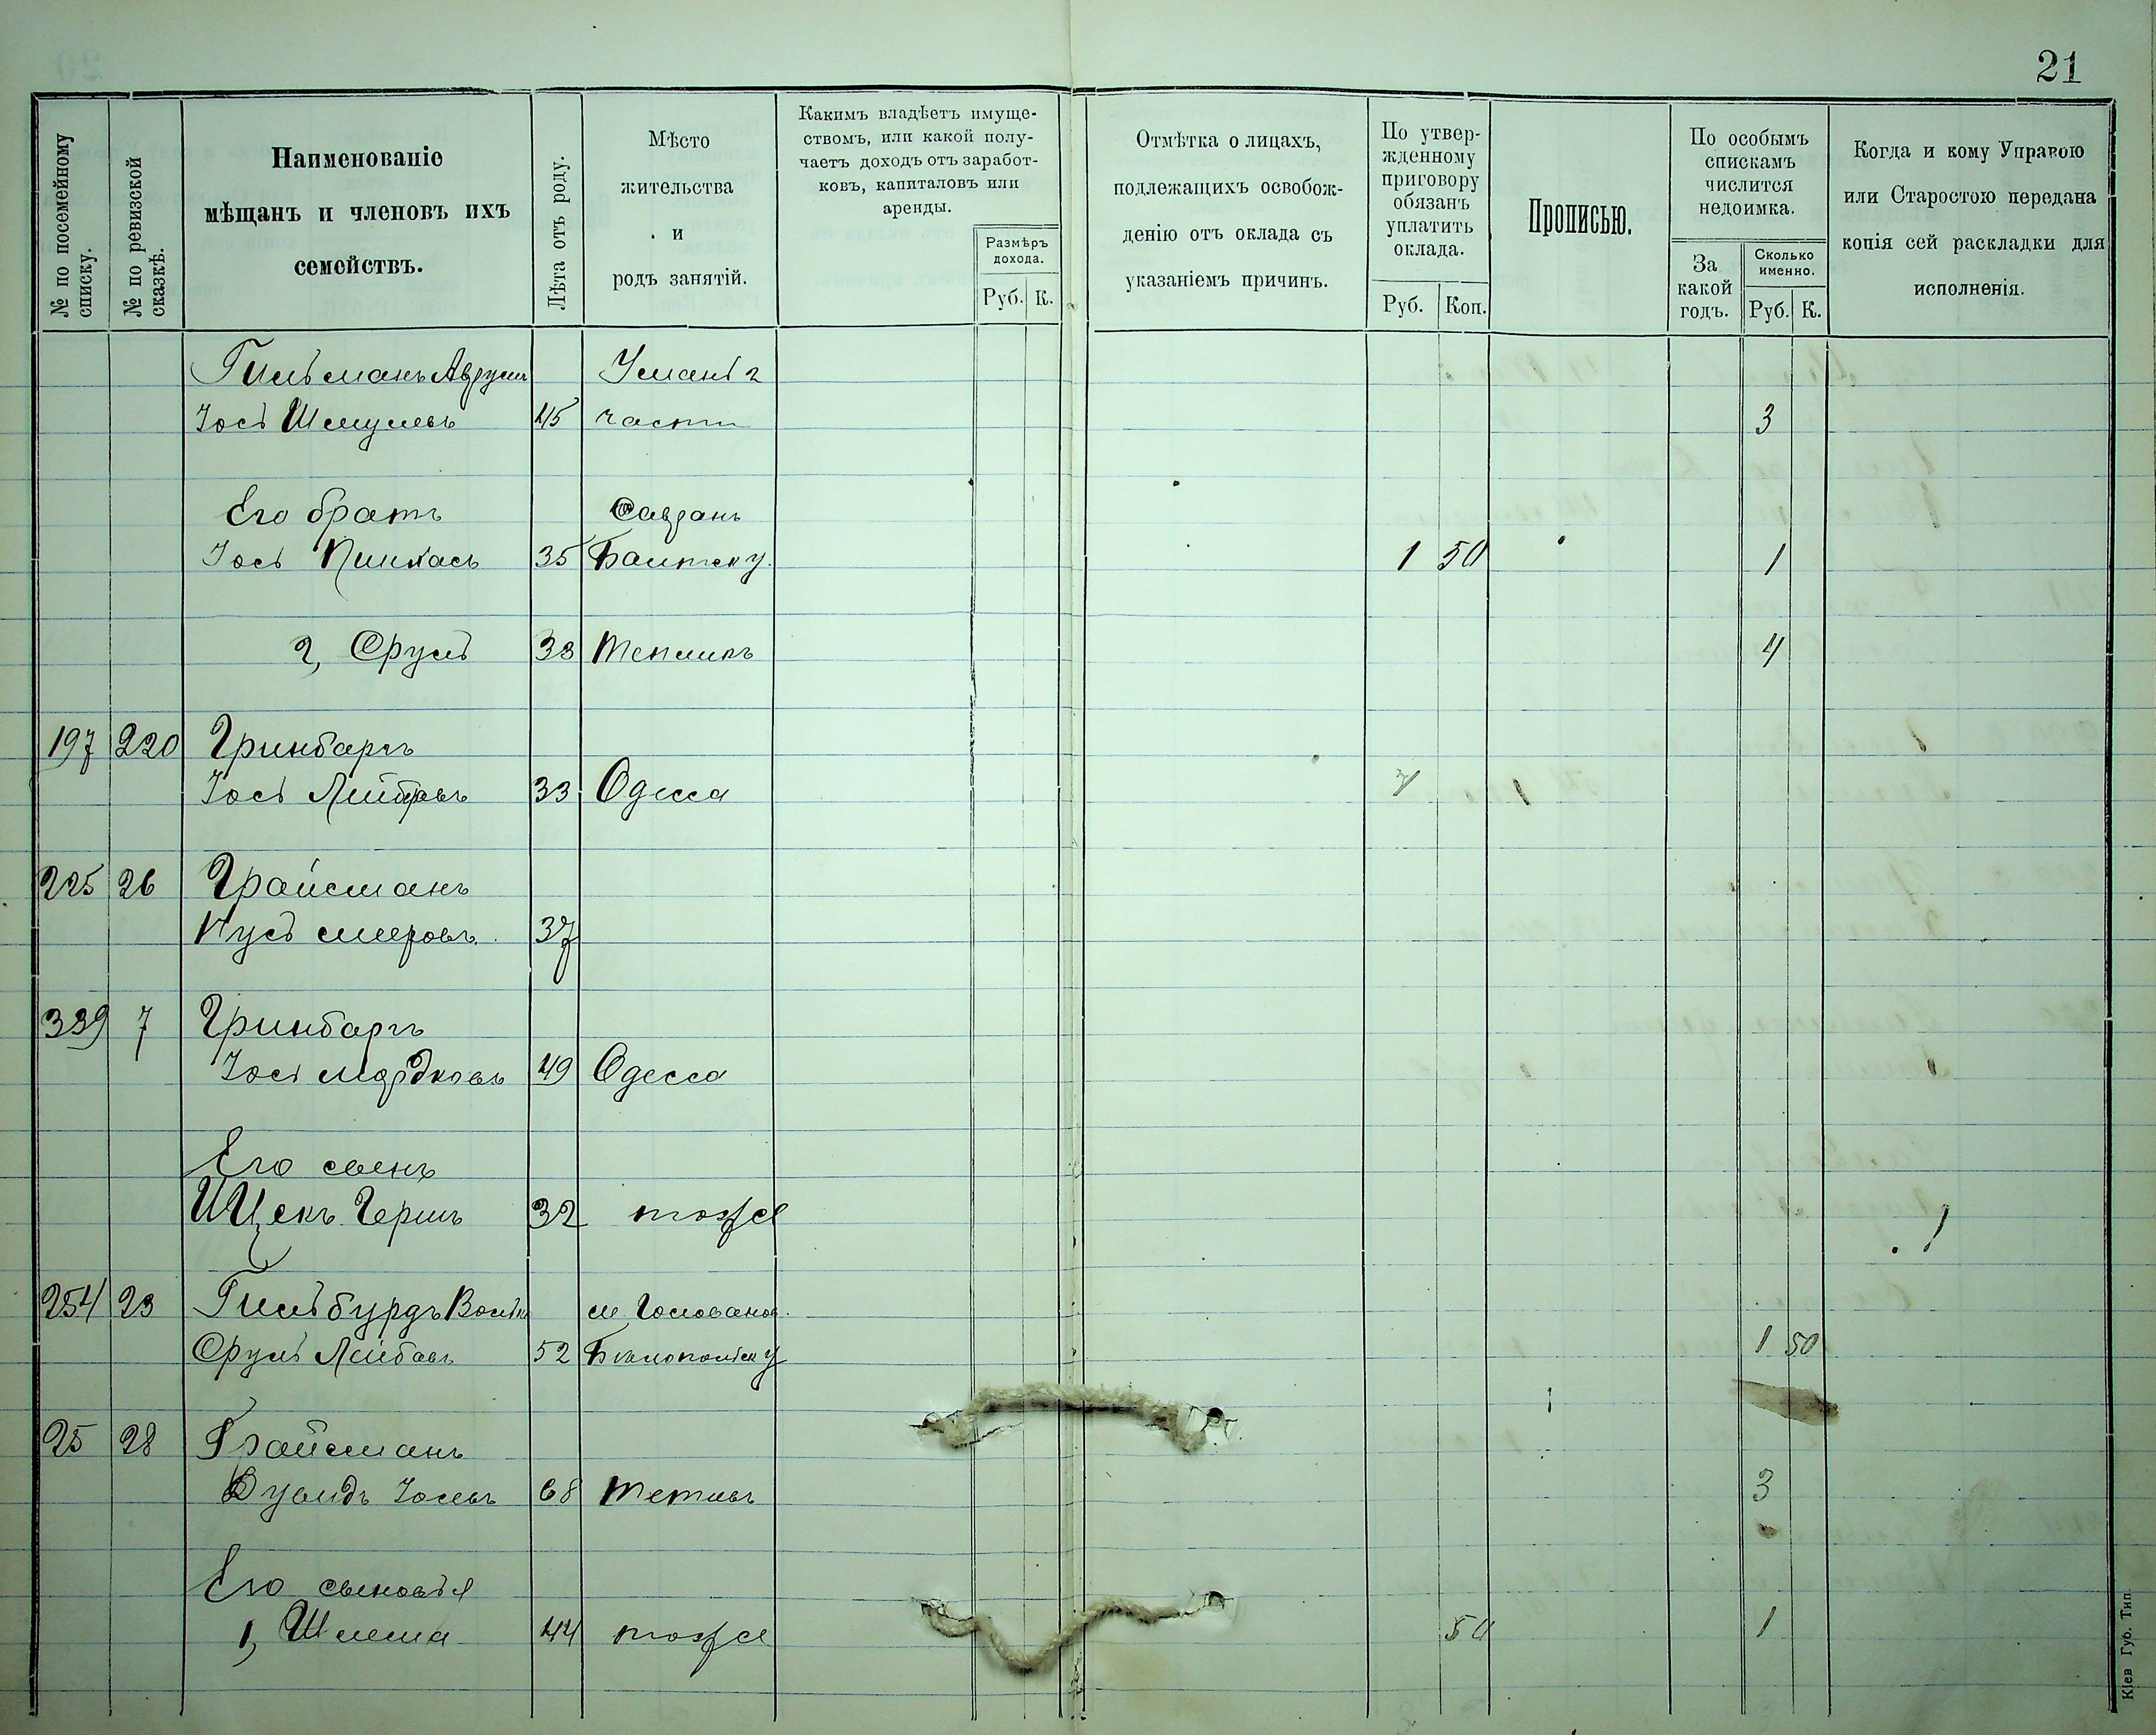 21
№ по посемейному списку.
№ по ревизской сказкѣ.
Наименованіе
мѣщанъ и членовъ ихъ
семействъ.
Лѣта отъ роду.
Мѣсто
жительства
и
родъ занятій.
Какимъ владѣетъ имуще-
ствомъ, или какой полу-
чаетъ доходъ отъ заработ-
ковъ, капиталовъ или
аренды.
Размѣръ
дохода.
Руб. К.
Отмѣтка о лицахъ,
подлежащихъ освобож-
денію отъ оклада съ
указаніемъ причинъ.
По утвер-
жденному
приговору
обязанъ
уплатить
оклада.
Руб. Коп.
Прописью.
По особымъ
спискамъ
числится
недоимка.
За
какой
годъ.
Сколько
именно.
Руб. К.
Когда и кому Управою
или Старостою передана
копія сей раскладки для
исполненія.
Гильманъ Аврумъ Умань 2
Іось Шмулевъ 45 части 3
Его братъ Савранъ
Іось Пинхасъ 35 Балтск у. 1 50 1
2, Сруль 38 Тепликъ 4
197 220 Гринбаргъ
Іось Лейбовъ 33 Одесса
225 26 Грайсманъ
Нусь Мееровъ 37
339 7 Гринбаргъ
Іось Мордковъ 49 Одесса
Его сынъ
Ицекъ Гершъ 32 тоже
254 23 Гильбурдъ Волько м. Голованев.
Сруль Лейбовъ 52 1 50
25 28 Грайсманъ
Іосевъ 68 Тетіевъ 3
Его сыновья
1, Шлема 44 тоже 50 1
Кіев Губ. Тип.